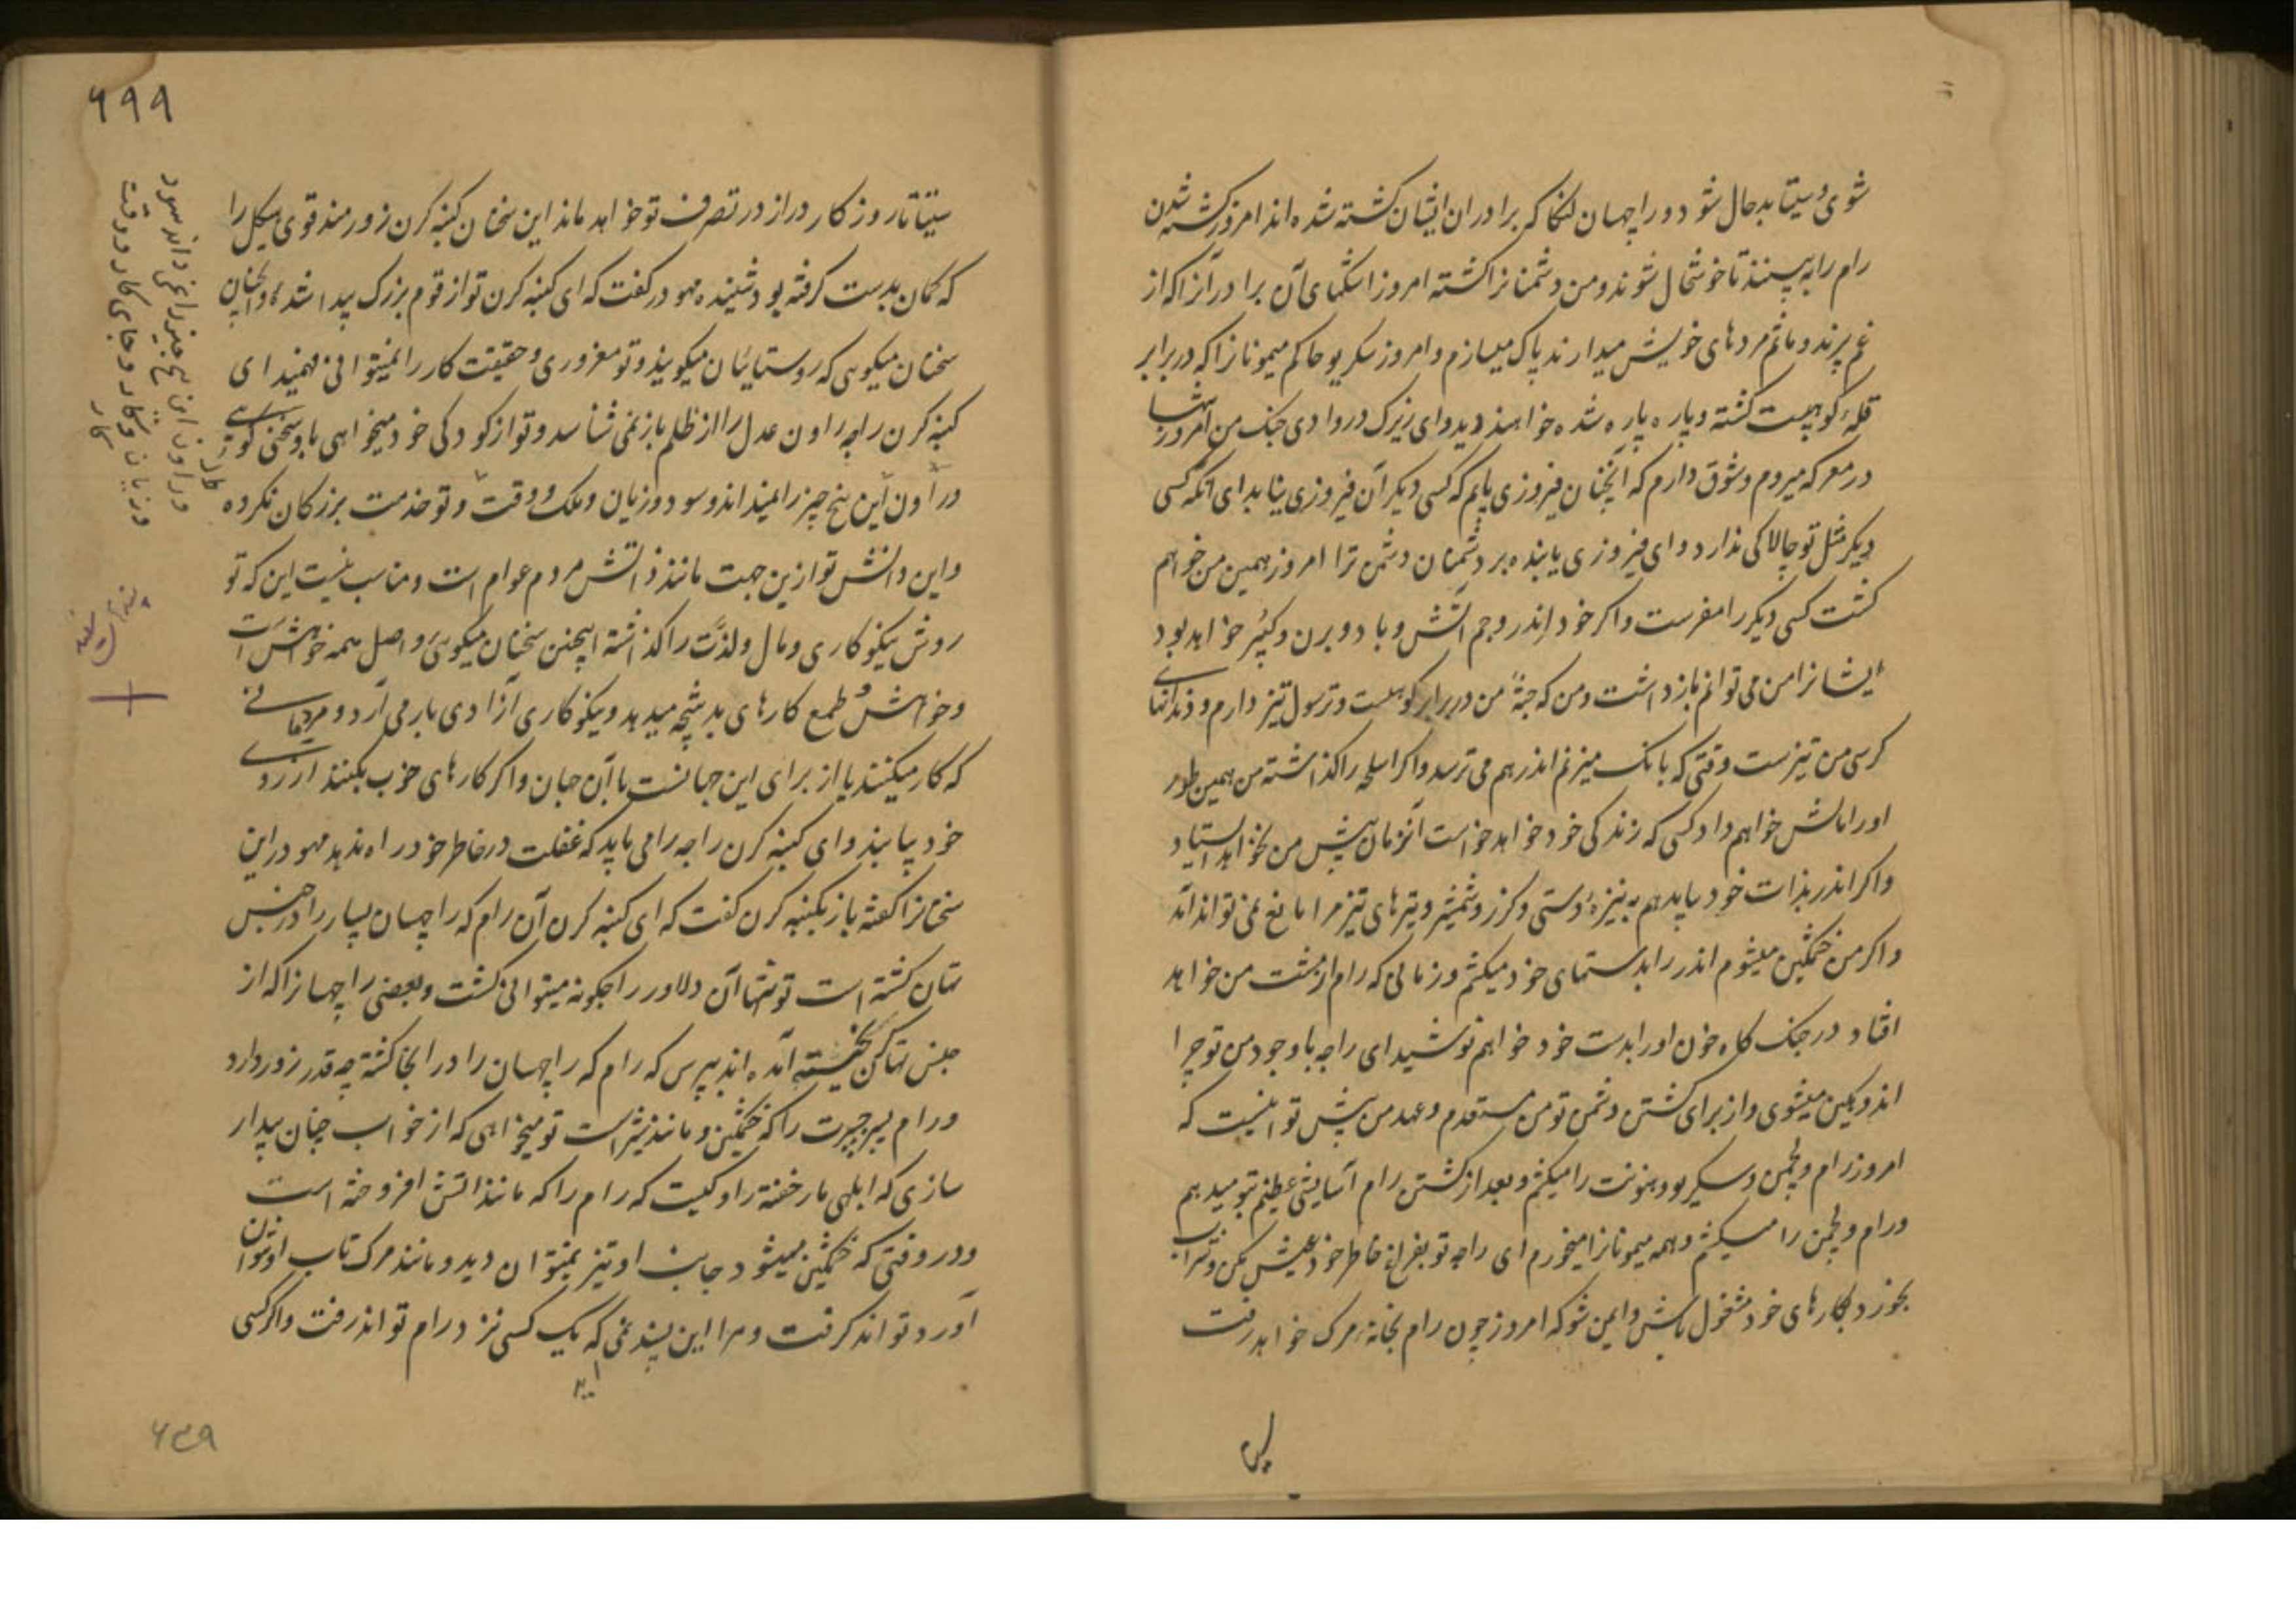 شوی و سیتا بدحال شود و راچهسان لنکا که برادران ایشان کشته شده اند امروز کشته شدن
رام را به بینند تا خوشحال شوند و من دشمنانرا کشته امروز اشکهای آن برادرانرا که از
غم پرند و ماتم مردهای خویش میدارند پاک میسازم و امروز سکریو حاکم میمونانرا که در برابر
قلهٔ کوهیست کشته و پاره پاره شده خواهند دید و ای زیرک در وادی جنک من امروز تنها
در معرکه میروم و شوق دارم که آنچنان فیروزی یابم که کسی دیکر آن فیروزی نیابد ای آنکه کسی
دیکر مثل تو چالاکی ندارد و ای فیروزی یابنده بر دشمنان دشمن ترا امروز همین من خواهم
کشت کسی دیکر را مفرست و اکر خود اندر و جم و آتش و باد و برن و کبیر خواهد بود
ایشانرا من می توانم بازداشت و من که جثهٔ من در برابر کوهست و ترسول تیز دارم و دندانهای
کرسی من تیزست وقتی که بانک میزنم اندر هم می ترسد و اکر اسلحه را کذاشته من همین طور
او را مالش خواهم داد کسی که زندکی خود خواهد خواست آنزمان پیش من نخواهد ایستاد
و اکر اندر بذات خود بیاید هم به نیزه دستی و کرز و شمشیر و تیرهای تیز مرا مانع نمی تواند آمد
و اکر من خشمکین میشوم اندر را بدستهای خود میکشم و زمانی که رام از مشت من خواهد
افتاد در جنک کاه خون او را بدست خود خواهم نوشید ای راجه با وجود من تو چرا
اندوهکین میشوی و از برای کشتن دشمن تو من مستعدم و عهد من پیش تو اینست که
امروز رام و لچمن و سکریو و هنونت را میکشم و بعد از کشتن رام آسایش عظیم بتو میدهم
و رام و لچمن را میکشم و همه میمونانرا میخورم ای راجه تو بفراغ خاطر خود عیش بکن و شراب
بخور و بکارهای خود مشغول باش و ایمن شو که امروز چون رام بخانهٔ مرک خواهد رفت
۶۹۹
سیتا تا روزکار دراز در تصرف تو خواهد ماند این سخنان کنبه کرن زورمند قوی هیکل را
که کمان بدست کرفته بود شنیده مهودر کفت که ای کنبه کرن تو از قوم بزرک پیدا شدهٔ و آنچنان
سخنان میکویی که روستائیان میکویند و تو مغروری و حقیقت کار را نمیتوانی فهمید ای
کنبه کرن راجه راون عدل را از ظلم باز نمی شناسد و تو از کودکی خود میخواهی با و سخنی کوئی
و راون این پنج چیز را نمیداند و سود و زیان و ملک و وقت و تو خدمت بزرکان نکرده
و این دانش تو ازین جهت مانند دانش مردم عوام است و مناسب نیست این که تو
روش نیکوکاری و مال و لذت را کذاشته اینچنین سخنان میکوئی و اصل همه خواهش است
و خواهش و طمع کارهای بد نتیجه میدهد و نیکوکاری آزادی بار می آرد و مردمانی
که کار میکنند یا از برای این جهانست یا آن جهان و اکر کارهای خوب بکنند ارزوی
خود یابند و ای کنبه کرن راجه را می باید که غفلت در خاطر خود راه ندهد مهودر این
سخنانرا کفته باز بکنبه کرن کفت که ای کنبه کرن آن رام که راچهسان بسیار را در جنس
تهان کشته است تو تنها آن دلاور را چکونه میتوانی کشت و بعضی راچهسانرا که از
جنس تهان کریخته آمده اند بپرس که رام که راچهسان را در آنجا کشته چه قدر زور دارد
و رام پسر جسرت را که خشمکین و مانند شیر است تو میخواهی که از خواب چنان بیدار
سازی که ابلهی مار خفته را و کیست که رام را که مانند آتش افروخته است
و در وقتی که خشمکین میشود جانب او تیز نمیتوان دید و مانند مرک تاب او نتوان
آورد تواند کرفت و مرا این پسند نمی که یک کسی نزد رام تواند رفت و اکر کسی
آید
و راون این پنج چیز را نمی داند سود
و زیان و کار و جای کار و وقت
کار
۶۳۹